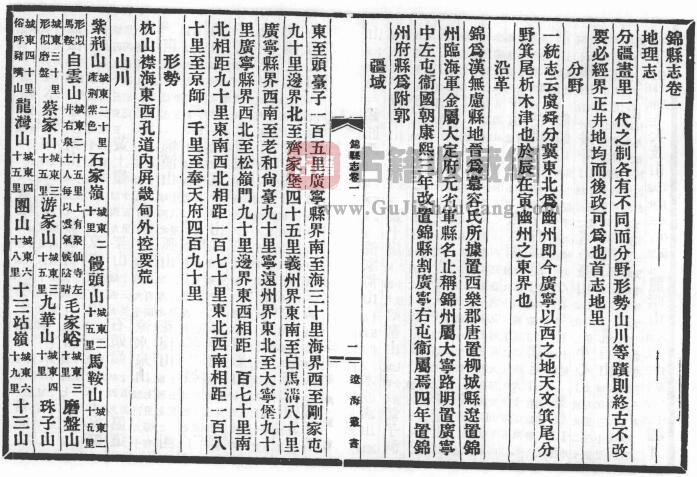 錦縣志卷一
地理志
分疆畫里一代之制各有不同而分野形勢山川等蹟則終古不改
要必經界正井地均而後政可爲也首志地里
分野
一統志云虞舜分冀東北爲幽州即今廣寧以西之地天文箕尾分
野箕尾析木津也於辰在寅幽州之東界也
沿革
錦縣爲漢無慮縣地晉爲慕容氏所據置西樂郡唐置柳城縣遼置錦
州臨海軍金屬大定府元省軍縣名止稱錦州屬大寧路明置廣寧
中左屯衞國朝康熙元年改置錦縣割廣寧右屯衞屬焉四年置錦
州府縣爲附郭
疆域
錦縣志卷一
一
遼海叢書
東至頭臺子一百五里廣寧縣界南至海三十里海界西至剛家屯
九十里邊界北至齊家堡四十五里義州界東南至白馬溝八十里
廣寧縣界西南至老和尙臺九十里寧遠州界東北至大寧堡九十
里廣寧縣界西北至松嶺門九十里邊界東西相距一百七十里南
北相距九十里東南西北相距一百七十里東北西南相距一百八
十里至京師一千里至奉天府四百九十里
形勢
枕山襟海東西孔道內屏畿甸外控要荒
山川
紫荆山城東二十里產荆紫色石家嶺城東二十里饅頭山城東二十五里馬鞍山城東二十五里
形似馬鞍白雲山城東二十五里上有聚仙寺左井右泉土人每以雲氣候陰晴毛家峪城東三十里磨盤山
城東三十里形似磨盤蔡家山城東三十五里游家山城東三十五里九華山城東四十里珠子山
城東四十里俗呼豬嘴山龍灣山城東四十五里團山城東六十八里十三站嶺城東六十九里十三山
古籍收藏網
www.GuJi
ang.com